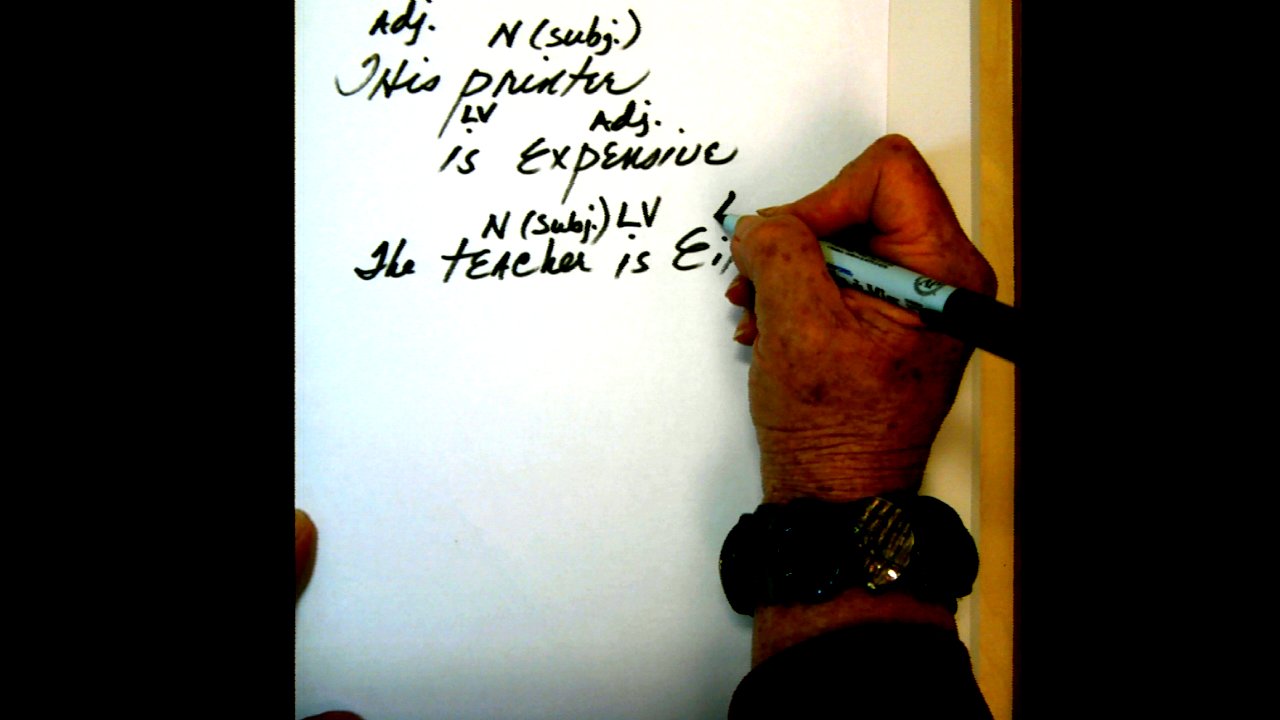 Adj. N (subj.)
This printer
LV Adj.
is Expensive
N (subj.) LV
The tEAcher is